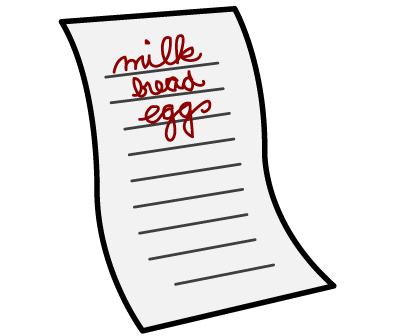 milk
bread
eggs